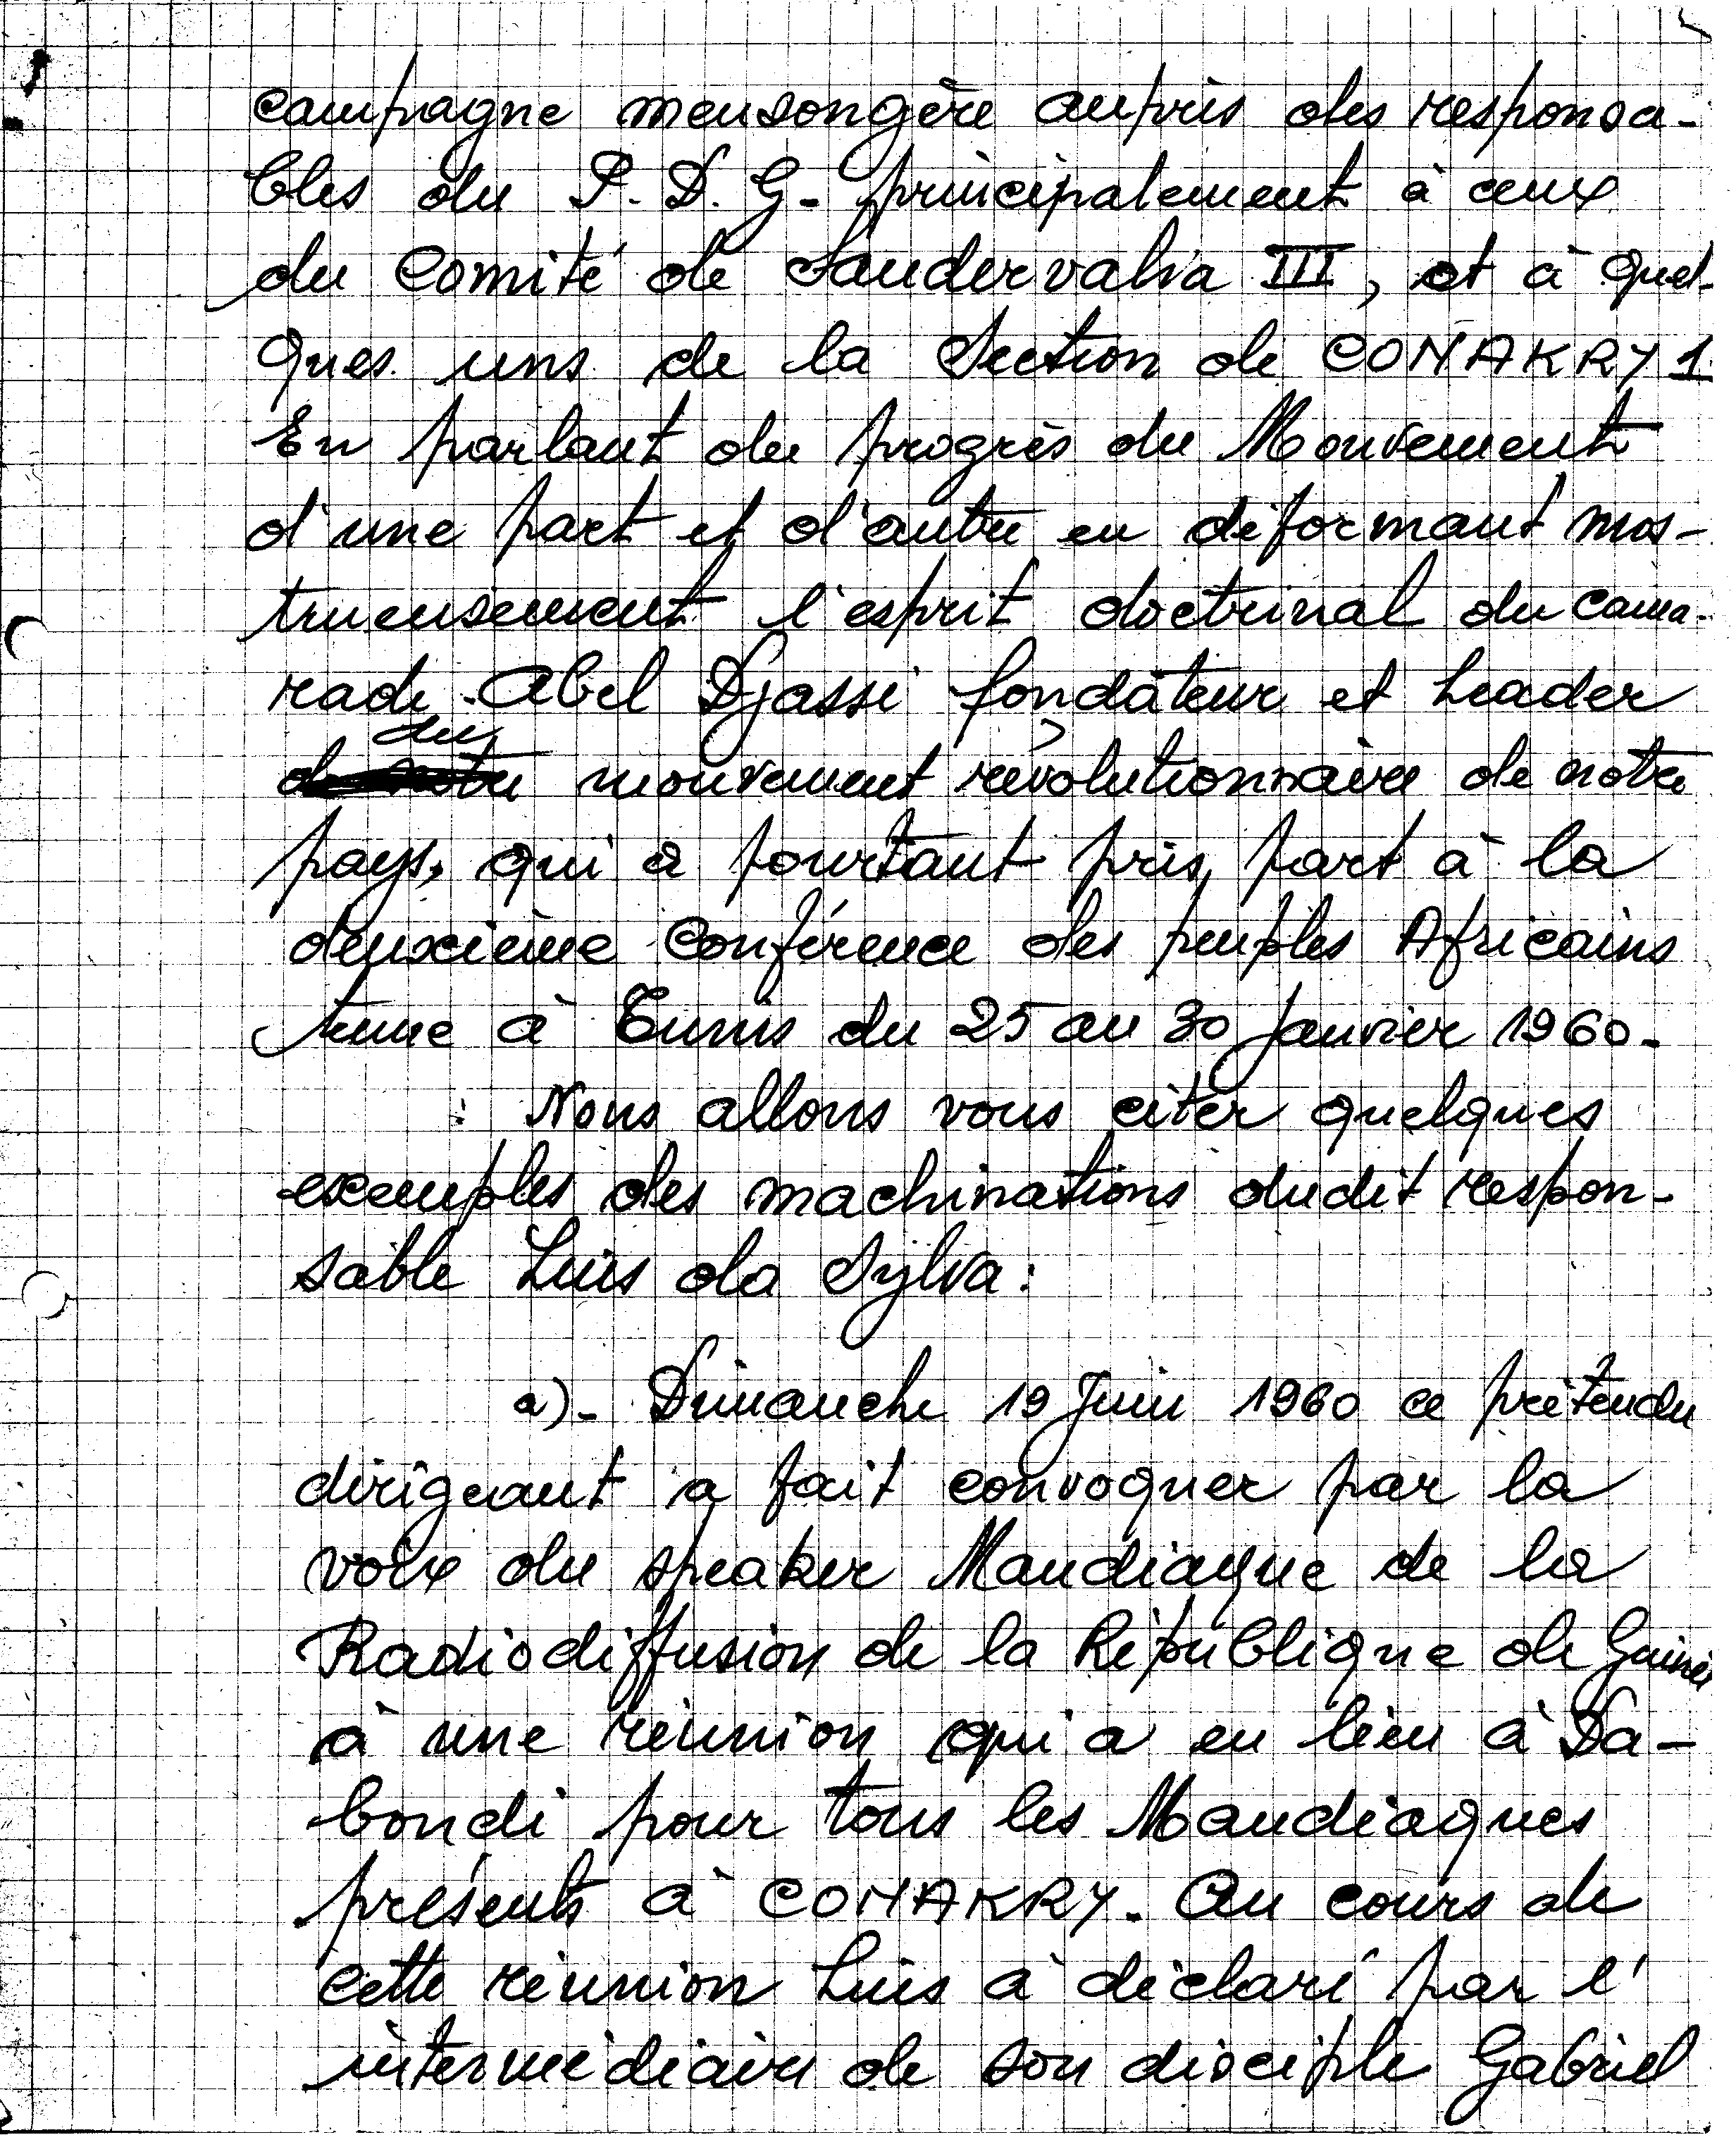 campagne mensongère auprès des responsa-
bles du P.D.G- principalement à ceux
du Comité de Sandervalia III, et à quel-
ques uns de la Section de CONAKRY 1
En parlant du progrès du Mouvement
d'une part et d'autre en déformant mos-
trueusement l'esprit doctrinal du cama-
rade Abel Djassi fondateur et Leader
du mouvement révolutionnaire de notre
pays, qui a pourtant pris part à la
deuxième Conférence des peuples Africains
tenue à Tunis du 25 au 30 Janvier 1960-
Nous allons vous citer quelques
exemples des machinations dudit respon-
sable Luis da Sylva:
a)- Dimanche 19 Juin 1960 ce prétendu
dirigeant a fait convoquer par la
voix du speaker Mandiaque de la
Radiodiffusion de la République de Guinée
à une réunion qui a eu lieu à Da-
bondi pour tous les Mandiaques
présents à CONAKRY. Au cours de
cette réunion Luis à déclaré par l'
intermédiaire de son disciple Gabriel